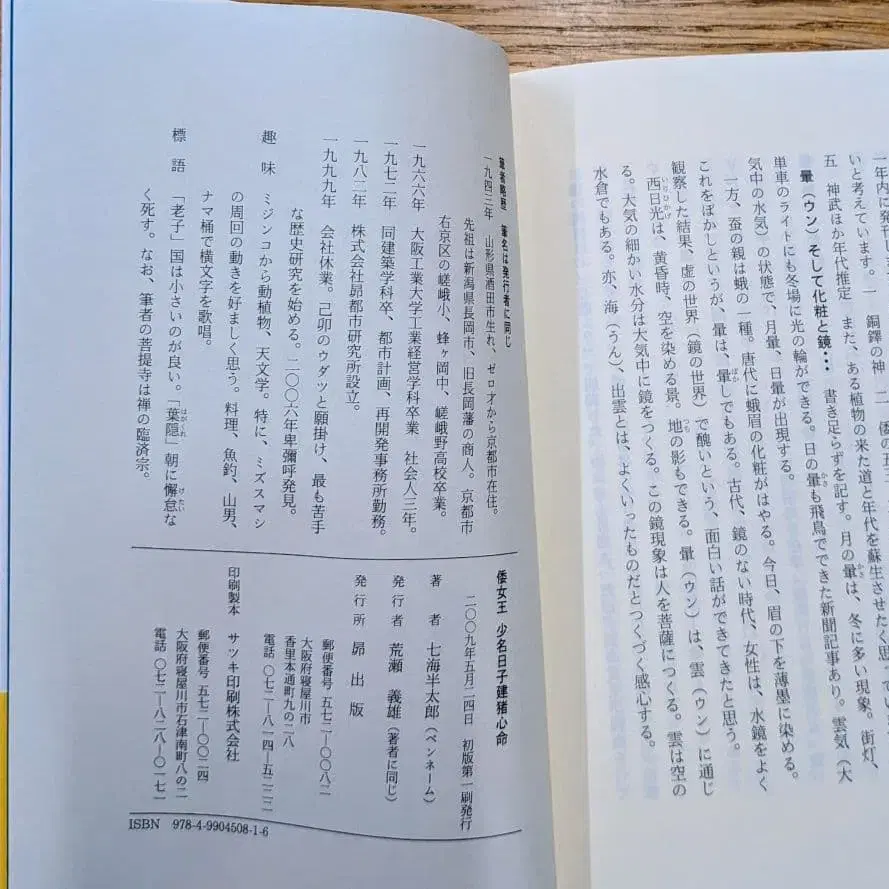 一年内に発刊しま 一 銅鐸の神 二 倭の五
五 神武ほか年代推定 また、ある植物の来た道と年代を蘇生させたく思ってい
いと考えています。
暈（ウン）そして化粧と鏡・・・ 書き足らずを記す。月の暈は、冬に多い現象。街灯、
単車のライトにも冬場に光の輪ができる。日の暈も飛鳥でできた新聞記事あり。雲気（大
気中の水気）の状態で、月暈、日暈が出現する。
一方、蚕の親は蛾の一種。唐代に蛾眉の化粧がはやる。今日、眉の下を薄墨に染める。
これをぼかしというが、暈は、暈しでもある。古代、鏡のない時代、女性は、水鏡をよく
観察した結果、虚の世界（鏡の世界）で醜いという、面白い話ができてきたと思う。
西日光は、黄昏時、空を染める景。地の影もできる。暈（ウン）は、雲（ウン）に通じ
る。大気の細かい水分は大気中に鏡をつくる。この鏡現象は人を菩薩につくる。雲は空の
水倉でもある。亦、海（うん）、出雲とは、よくいったものだとつくづく感心する。
筆者略歴 筆名は発行者に同じ
一九四三年 山形県酒田市生れ、ゼロ才から京都市在住。
先祖は新潟県長岡市、旧長岡藩の商人。京都市
右京区の嵯峨小、蜂ヶ岡中、嵯峨野高校卒業。
一九六六年 大阪工業大学工業経営学科卒業 社会人三年。
一九七二年 同建築学科卒、都市計画、再開発事務所勤務。
一九八二年 株式会社昴都市研究所設立。
一九九九年 会社休業。己卯のウダツと願掛け、最も苦手
な歴史研究を始める。二〇〇六年卑彌呼発見。
趣味 ミジンコから動植物、天文学。特に、ミズスマシ
の周回の動きを好ましく思う。料理、魚釣、山男、
ナマ桶で横文字を歌唱。
標語 「老子」国は小さいのが良い。「葉隠」朝に懈怠な
く死す。なお、筆者の菩提寺は禅の臨済宗。
倭女王 少名日子建猪心命
二〇〇九年五月二四日 初版第一刷発行
著者 七海半太郎（ペンネーム）
発行者 荒瀬 義雄（著者に同じ）
発行所 昴出版
郵便番号 五七二―〇〇八二
大阪府寝屋川市
香里本通町九の二八
電話 〇七二―八一四―五二二二
印刷製本 サツキ印刷株式会社
郵便番号 五七二―〇〇二四
大阪府寝屋川市石津南町八の二
電話 〇七二―八二八―〇一七一
ISBN 978-4-9904508-1-6